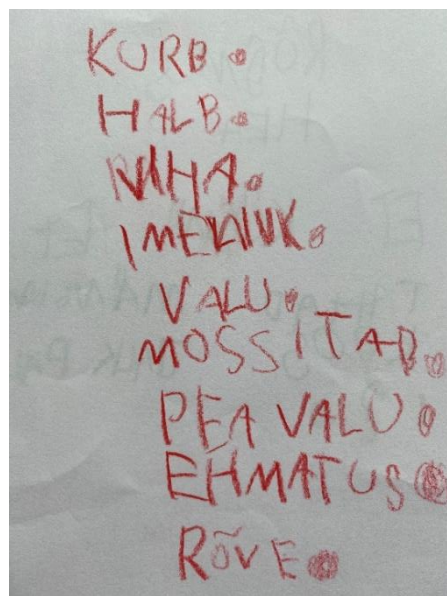 KURB.
HALB.
VIHA.
IMELIUK.
VALU.
MOSSITAD.
PEA VALU.
EHMATUS.
RÕVE.